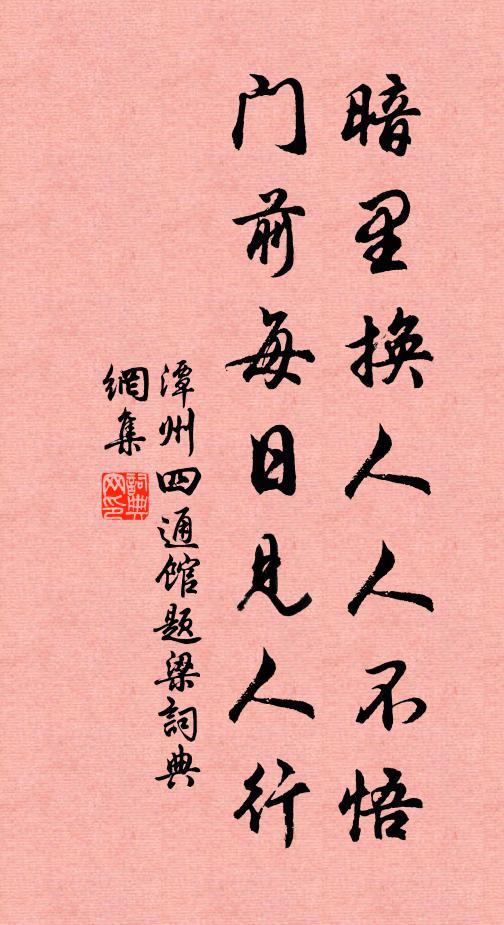 暗里换人人不悟
门前每日见人行
潭州四通馆题梁詞典
網集
詞典
网印